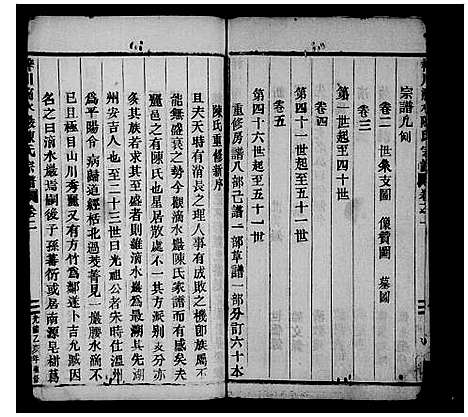 宗譜凡例
卷二　世系支圖　像贊圖　墓圖
卷三
第一世起至四十世
卷四
第四十一世起至五十世
卷五
第四十六世起至五十一世
重修房譜八部己譜一部草譜一部分訂六十本
陳氏重修新序
且夫天時有消長之理人事有成敗之機卽族屬不
能無盛衰之勢今觀滴水巖陳氏家譜而有感矣夫
麗邑之有陳氏也星居散處不一其方派别亥分亦
各其族求其至盛者則雖滴水巖爲最溯其先湖
州安吉人也至二十三世曰光祖公者宋時仕溫州
爲平陽令　病歸道經栝北過菱菁見一巖腰水滴不
已且極目山川秀麗又有方竹爲鄰遂卜吉允臧因
名之曰滴水巖焉嗣後子孫蕃衍或居南源皂樹蔦